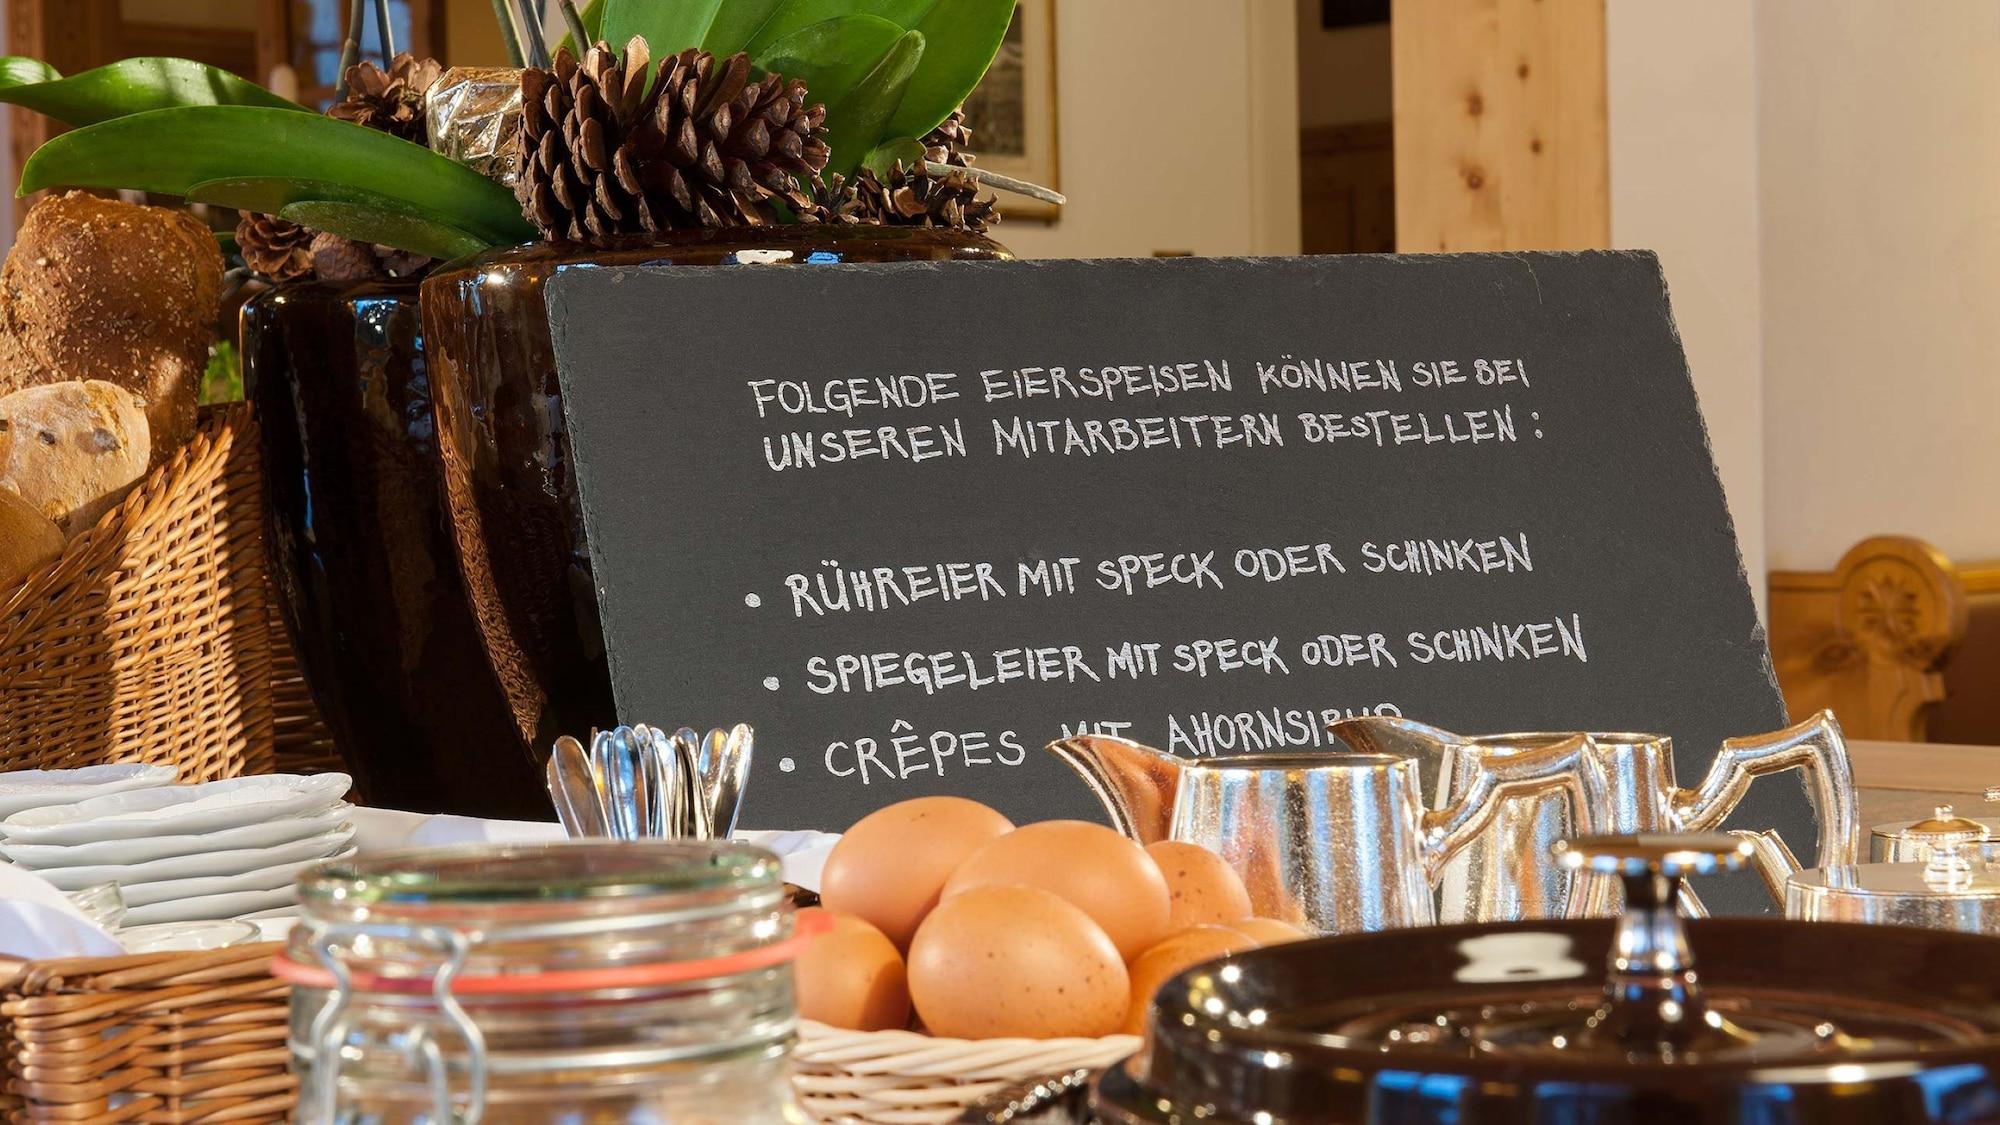 FOLGENDE EIERSPEISEN KÖNNEN SIE BEI
UNSEREN MITARBEITERN BESTELLEN :
• RÜHREIER MIT SPECK ODER SCHINKEN
• SPIEGELEIER MIT SPECK ODER SCHINKEN
• CRÊPES MIT AHORNSIRUP